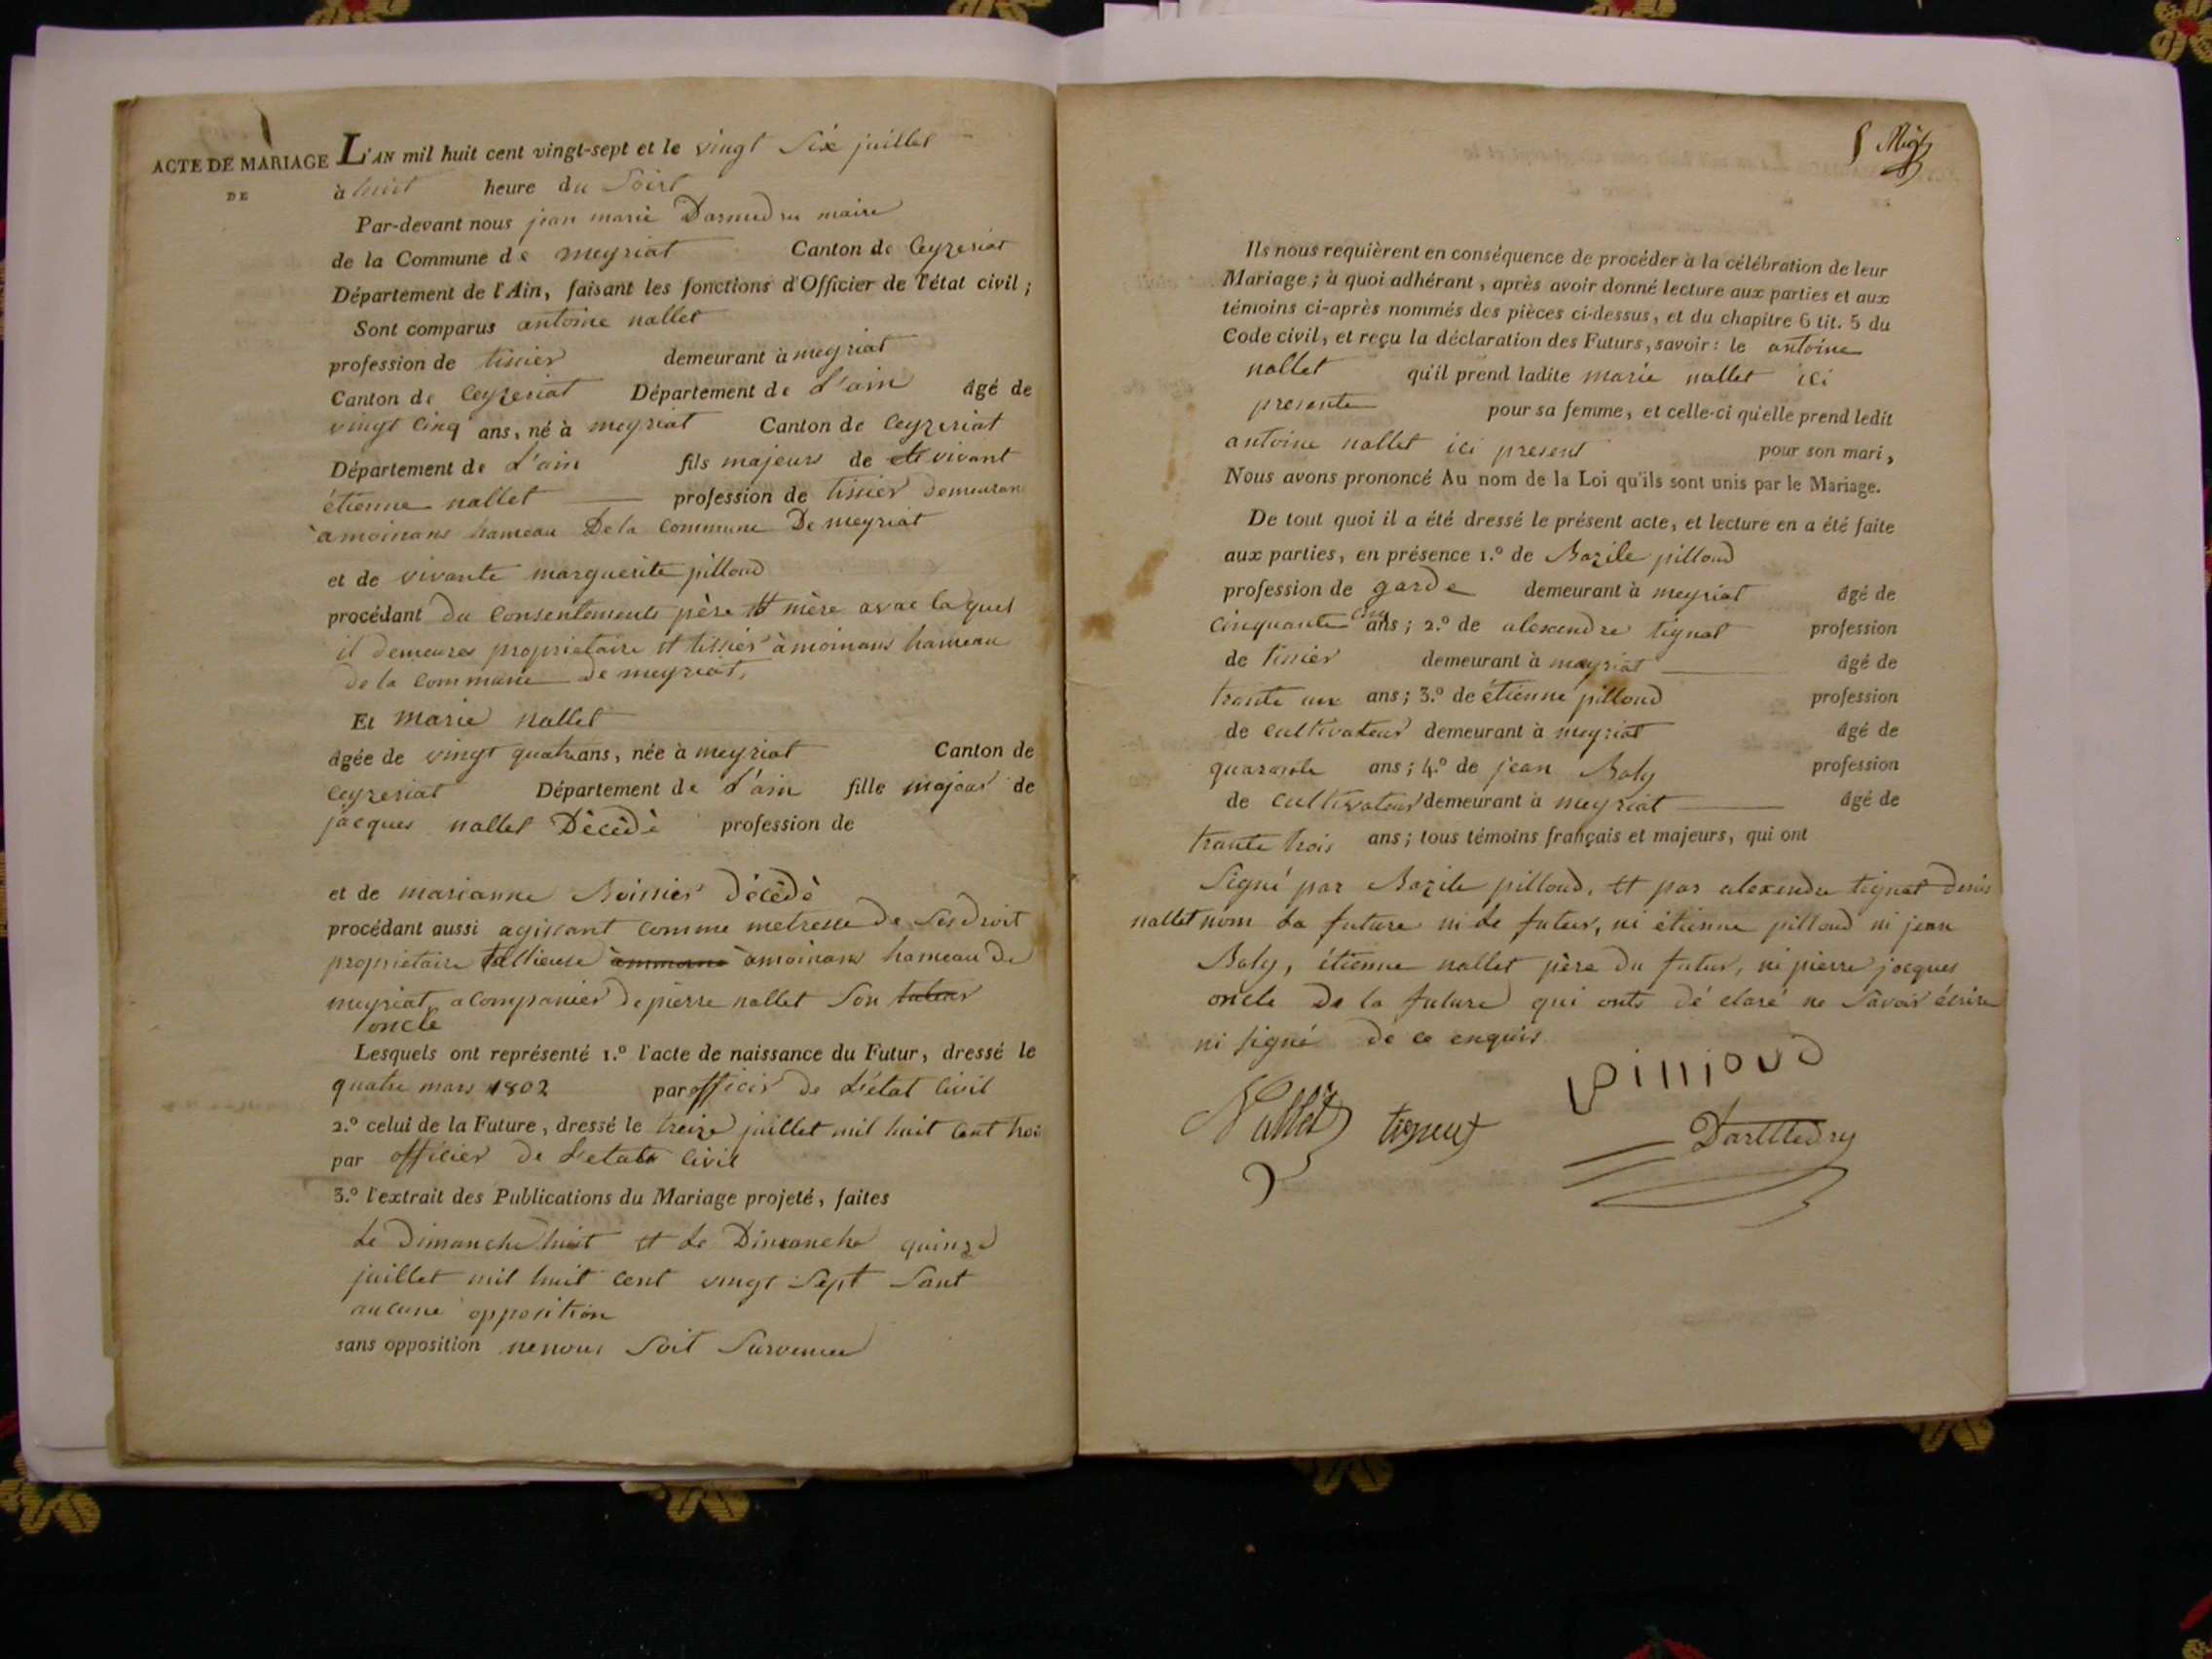 ACTE DE MARIAGE
DE
L'AN mil huit cent vingt-sept et le vingt six juillet
à huit heure du Soirt
Par-devant nous jean marie Darmedru maire
de la Commune de meyriat Canton de Ceyzeriat
Département de l'Ain, faisant les fonctions d'Officier de l'état civil ;
Sont comparus antoine nallet
profession de tissier demeurant à meyriat
Canton de Ceyzeriat Département de L'ain âgé de
vingt Cinq ans, né à meyriat Canton de Ceyzeriat
Département de L'ain fils majeurs de vivant
étienne nallet profession de tissier demeuran
à moinans hameau De la Commune De meyriat
et de vivante marguerite pilloud
procédant du Consentements père et mère avac laquel
il demeures proprietaire et tissier à moinans hameau
de la Commune de meyriat,
Et marie nallet
âgée de vingt quatre ans, née à meyriat Canton de
Ceyzeriat Département de L'ain fille majeur de
jacques nallet Dècèdè profession de
et de marianne Boissier décèdè
procédant aussi agissant comme metresse de Ses droit
proprietaire tallieuse à moinans hameau De
meyriat, acompanier de pierre nallet Son tuteur
oncle
Lesquels ont représenté 1.º l'acte de naissance du Futur, dressé le
quatre mars 1802 par officir de L'état Civil
2.º celui de la Future, dressé le treize juillet mil huit Cent troi
par officier de L'etats Civil
3.º l'extrait des Publications du Mariage projeté, faites
Le Dimanche huit et Le Dimanche quinze
juillet mil huit Cent vingt Sept Sant
aucune opposition
sans opposition ne nous Soit Survenue
Ils nous requièrent en conséquence de procéder à la célébration de leur
Mariage ; à quoi adhérant, après avoir donné lecture aux parties et aux
témoins ci-après nommés des pièces ci-dessus, et du chapitre 6 tit. 5 du
Code civil, et reçu la déclaration des Futurs, savoir : le antoine
nallet qu'il prend ladite marie nallet ici
presente pour sa femme, et celle-ci qu'elle prend ledit
antoine nallet ici present pour son mari,
Nous avons prononcé Au nom de la Loi qu'ils sont unis par le Mariage.
De tout quoi il a été dressé le présent acte, et lecture en a été faite
aux parties, en présence 1.º de Bazile pilloud
profession de garde demeurant à meyriat âgé de
Cinquante cinq ans ; 2.º de alexendre tignat profession
de tissier demeurant à meyriat âgé de
trante ans ; 3.º de étienne pilloud profession
de Cultivateur demeurant à meyriat âgé de
quarante ans ; 4.º de jean Boly profession
de Cultivateur demeurant à meyriat âgé de
trante trois ans ; tous témoins français et majeurs, qui ont
Signé par Bazile pilloud, et par alexendre tignat Denis
nallet nom La future ni Le futur, ni étienne pilloud ni jean
Boly, étienne nallet père du futur, ni pierre jacques
oncle De la future qui onts dé claré ne Savoir écrire
ni Signé de ce enquis
pilloud
Nallet tigneux
Darmedru